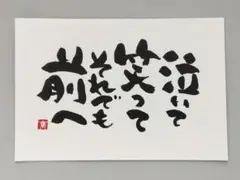 泣いて
笑って
それでも
前へ